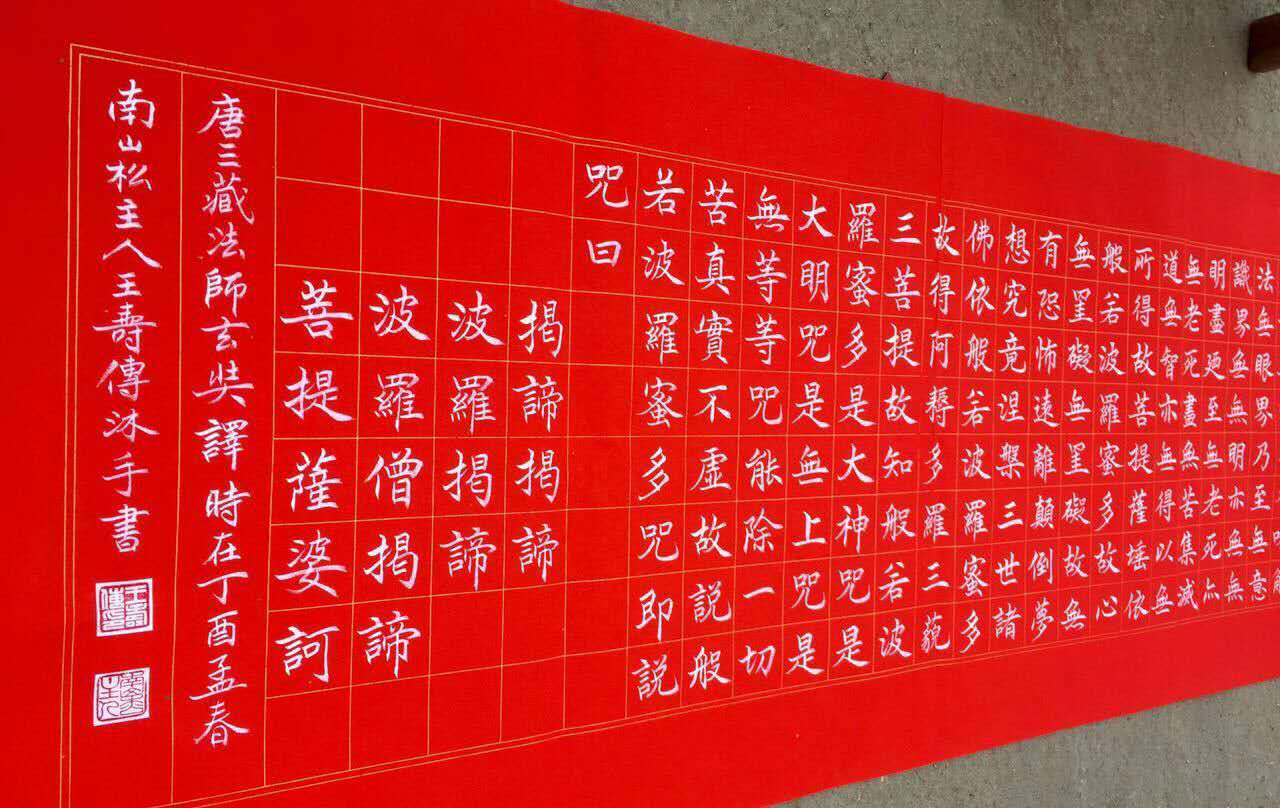 法無眼界乃至無意
識界無無明亦無無
明盡廼至無老死亦
無老死盡無苦集滅
道無智亦無得以無
所得故菩提薩埵依
般若波羅蜜多故心
無罣礙無罣礙故無
有恐怖遠離顛倒夢
想究竟涅槃三世諸
佛依般若波羅蜜多
故得阿耨多羅三藐
三菩提故知般若波
羅蜜多是大神咒是
大明咒是無上咒是
無等等咒能除一切
苦真實不虛故說般
若波羅蜜多咒即說
咒曰
揭諦揭諦
波羅揭諦
波羅僧揭諦
菩提薩婆訶
唐三藏法師玄奘譯時在丁酉孟春
南山松主人王壽傳沐手書